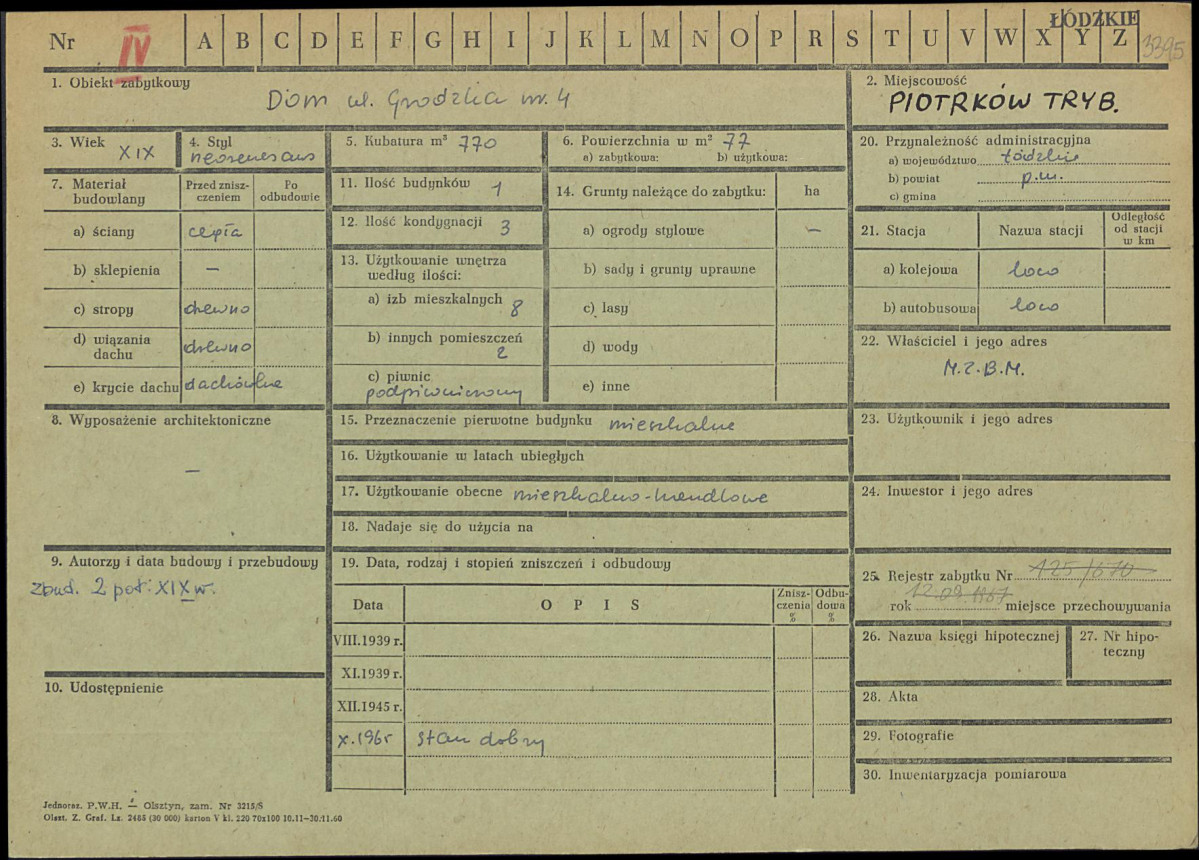 ŁÓDZKIE
Nr IV A B C D E F G H I J K L M N O P R S T U V W X Y Z 3395
1. Obiekt zabytkowy
Dom ul. Grodzka nr. 4
2. Miejscowość
PIOTRKÓW TRYB.
3. Wiek XIX
4. Styl
neorenesans
5. Kubatura m³ 770
6. Powierzchnia w m² 77
a) zabytkowa: b) użytkowa:
7. Materiał budowlany
Przed zniszczeniem
Po odbudowie
a) ściany cegła
b) sklepienia —
c) stropy drewno
d) wiązania dachu drewno
e) krycie dachu dachówka
8. Wyposażenie architektoniczne
—
9. Autorzy i data budowy i przebudowy
zbud. 2 poł. XIX w.
10. Udostępnienie
11. Ilość budynków 1
12. Ilość kondygnacji 3
13. Użytkowanie wnętrza
według ilości:
a) izb mieszkalnych 8
b) innych pomieszczeń
2
c) piwnic
podpiwniczony
14. Grunty należące do zabytku: ha
a) ogrody stylowe —
b) sady i grunty uprawne
c) lasy
d) wody
e) inne
15. Przeznaczenie pierwotne budynku mieszkalne
16. Użytkowanie w latach ubiegłych
17. Użytkowanie obecne mieszkalno-handlowe
18. Nadaje się do użycia na
19. Data, rodzaj i stopień zniszczeń i odbudowy
Data OPIS Zniszczenia % Odbudowa %
VIII.1939 r.
XI.1939 r.
XII.1945 r.
X.1965 stan dobry
20. Przynależność administracyjna
a) województwo łódzkie
b) powiat p.m.
c) gmina
21. Stacja Nazwa stacji Odległość od stacji w km
a) kolejowa loco
b) autobusowa loco
22. Właściciel i jego adres
M.Z.B.M.
23. Użytkownik i jego adres
24. Inwestor i jego adres
25. Rejestr zabytku Nr 425/670
rok 12.09.1967 miejsce przechowywania
26. Nazwa księgi hipotecznej
27. Nr hipoteczny
28. Akta
29. Fotografie
30. Inwentaryzacja pomiarowa
Jednoraz. P.W.H. — Olsztyn, zam. Nr 3215/S
Olszt. Z. Graf. Lz. 2485 (30 000) karton V kl. 220 70x100 10.11—30.11.60